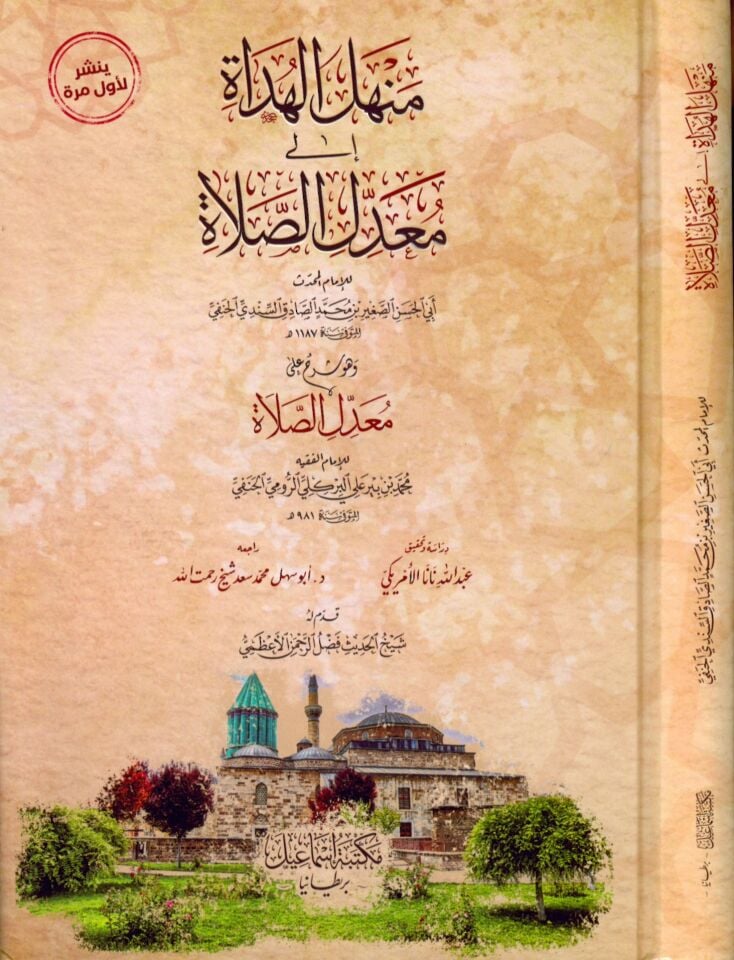 ينشر
لأول مرة
مَنْهَلُ الْهُدَاةِ
إلى
مُعَدِّلِ الصَّلَاةِ
للإمام المحدث
أَبِي الحَسَنِ الصَّغِيرِ بْنِ مُحَمَّدٍ الصَّادِقِ السِّنْدِيِّ الحَنَفِيِّ
المتوفى سنة ١١٨٧ هـ
وهو شرح على
مُعَدِّلِ الصَّلَاةِ
للإمام الفقيه
مُحَمَّدِ بْنِ بِيرْ عَلِي البِرْكِلِيِّ الرُّومِيِّ الحَنَفِيِّ
المتوفى سنة ٩٨١ هـ
دراسة وتحقيق
عبد الله نانا الأمريكي
راجعه
د. أبو سهل محمد سعد شيخ رحمت الله
قدم له
شيخ الحديث فضل الرحمن الأعظمي
مكتبة إسماعيل
- بريطانيا -
مَنْهَلُ الْهُدَاةِ إلى مُعَدِّلِ الصَّلَاةِ
للإمام المحدث أَبِي الحَسَنِ الصَّغِيرِ بْنِ مُحَمَّدٍ الصَّادِقِ السِّنْدِيِّ الحَنَفِيِّ
مكتبة إسماعيل
- بريطانيا -